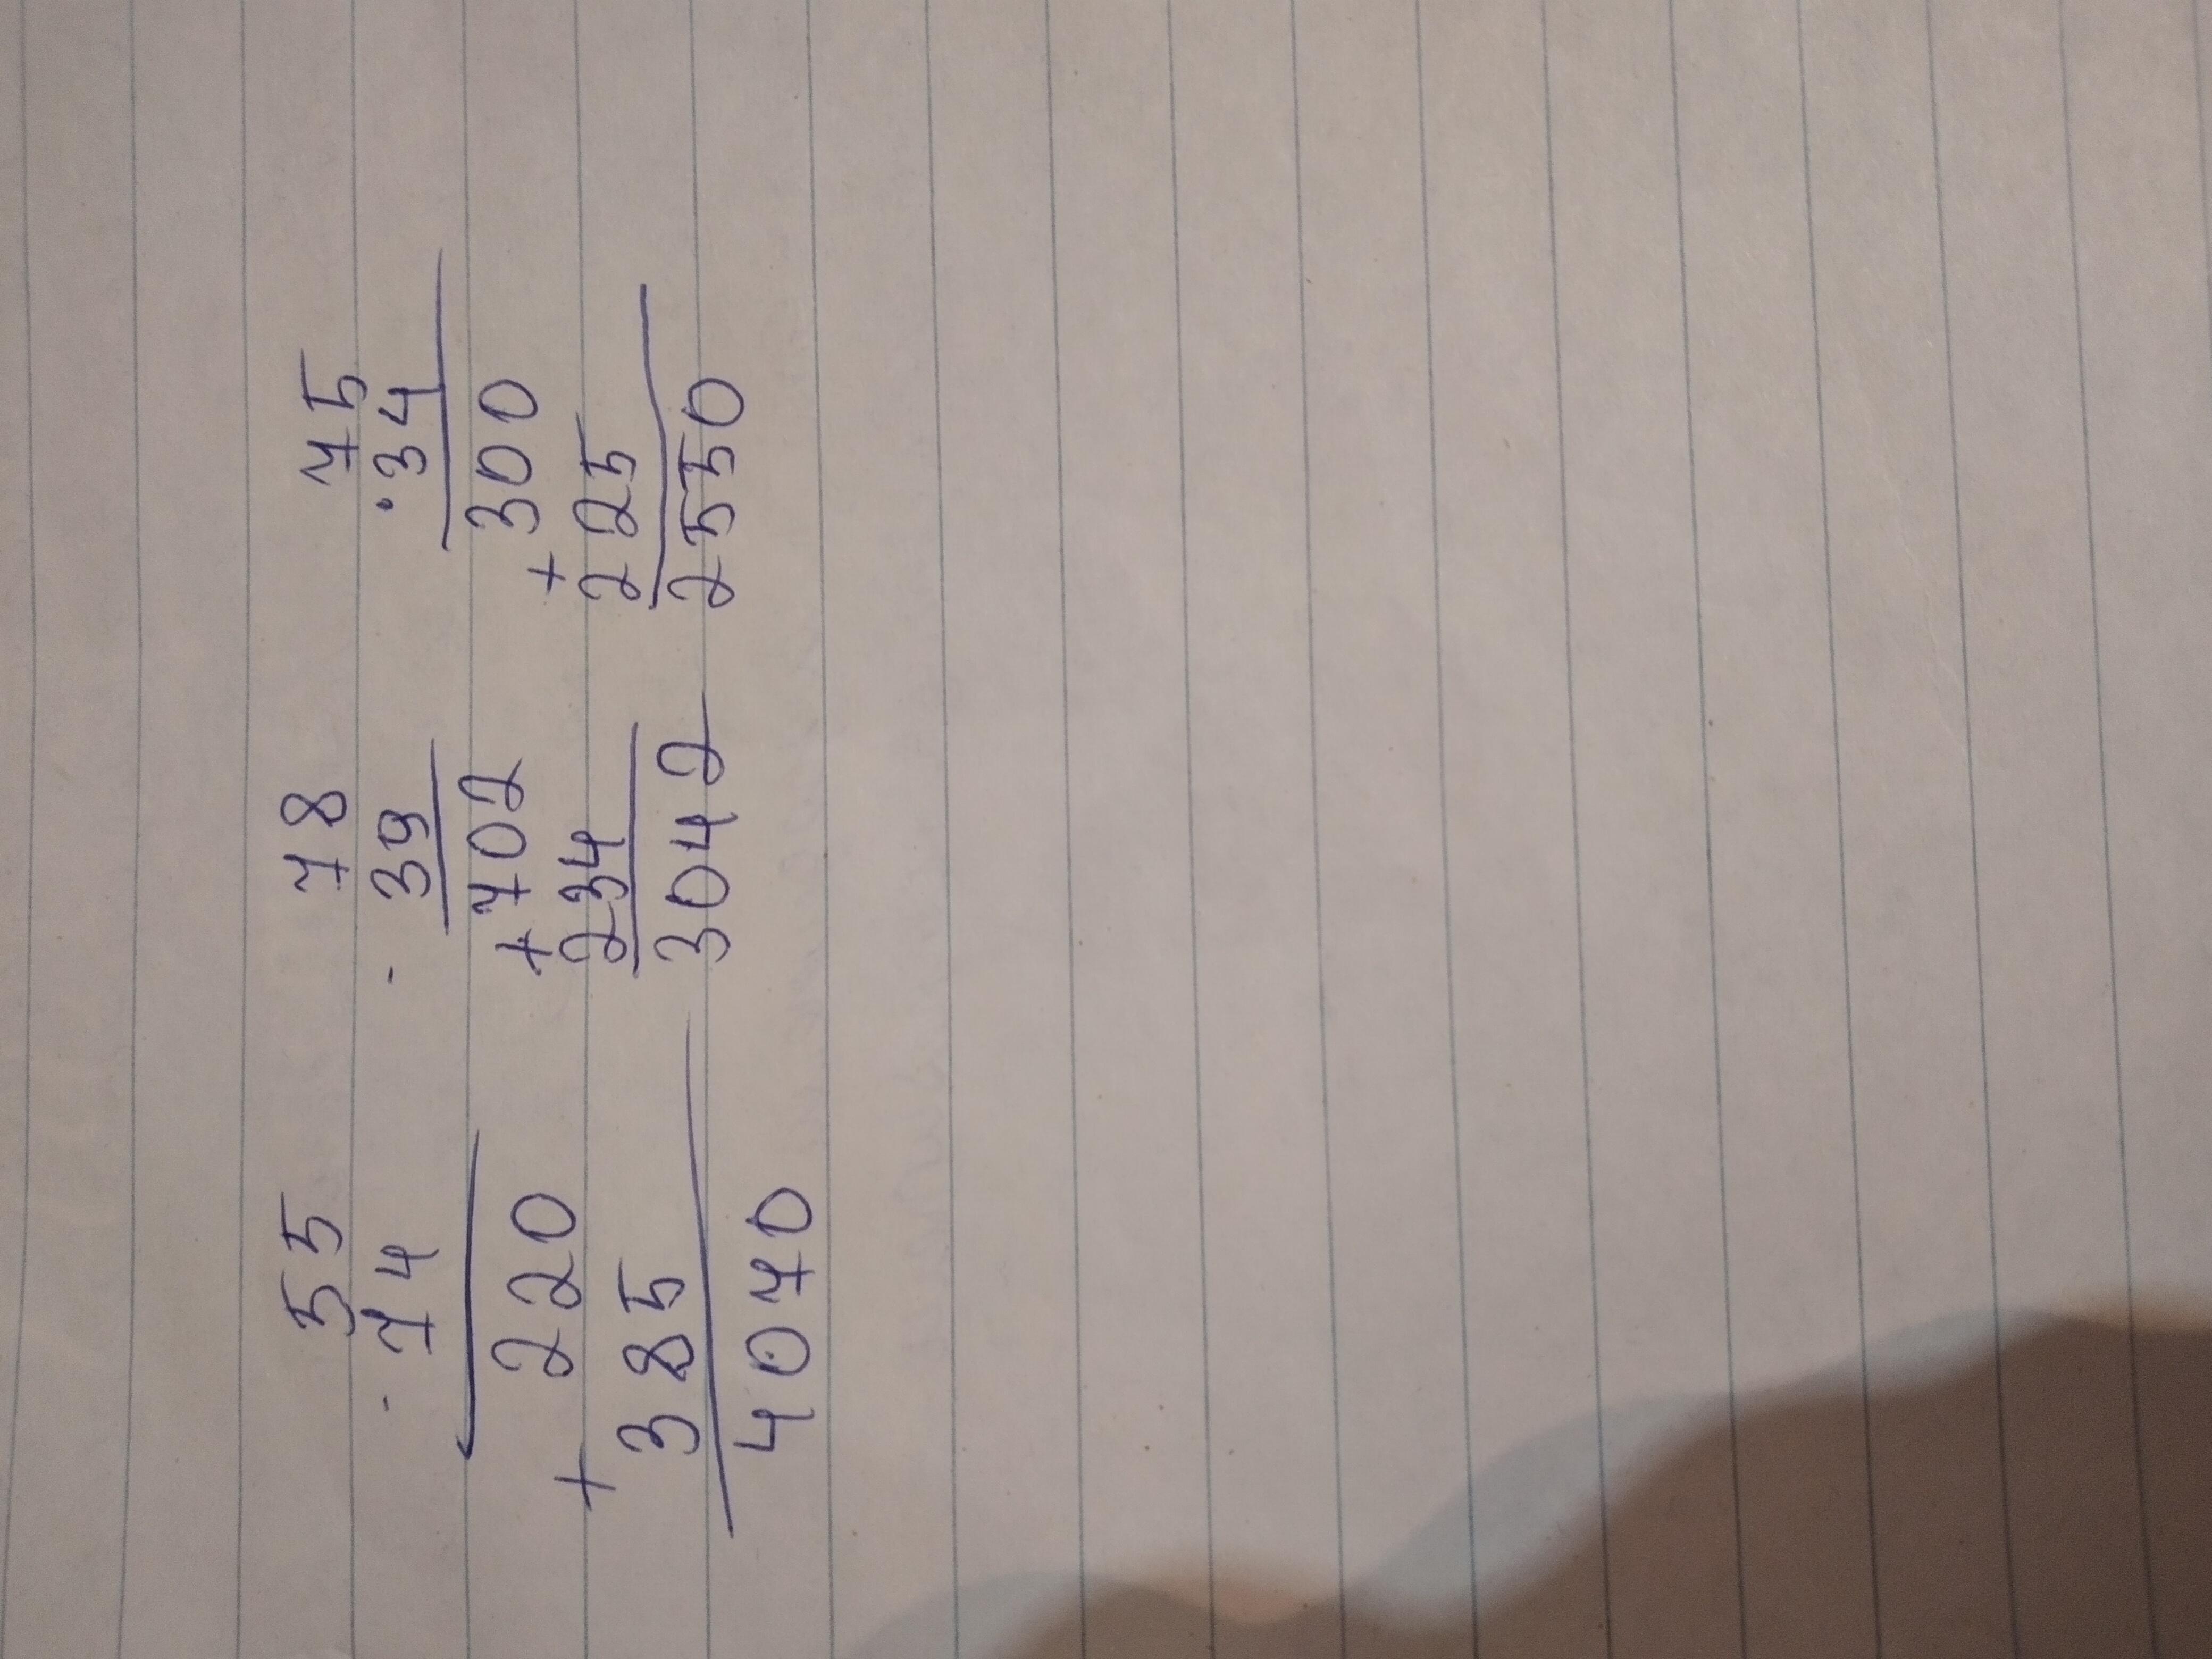 55
· 74
220
+
385
4070
78
· 39
702
+
234
3042
75
· 34
300
+
225
2550